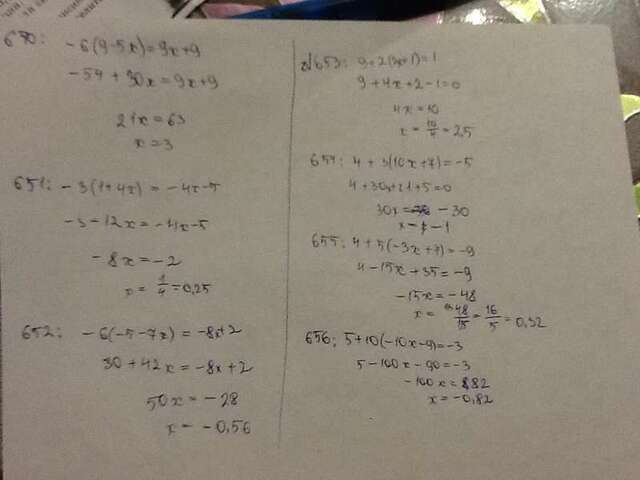 650: -6(9-5x)=9x+9
-54+30x=9x+9
21x=63
x=3
651: -3(1+4x)=-4x-5
-3-12x=-4x-5
-8x=-2
x=1/4=0,25
652: -6(-5-7x)=-8x+2
30+42x=-8x+2
50x=-28
x=-0,56
N653:
9+4x+2-1=0
4x=10
x=10/4=2,5
654: 4+3(10x+7)=-5
4+30x+21+5=0
30x= -30
x= -1
655: 4+5(-3x+7)=-9
4-15x+35=-9
-15x=-48
x=48/15=16/5=0,32
656: 5+10(-10x-9)=-3
5-100x-90=-3
-100x=82
x=-0,82